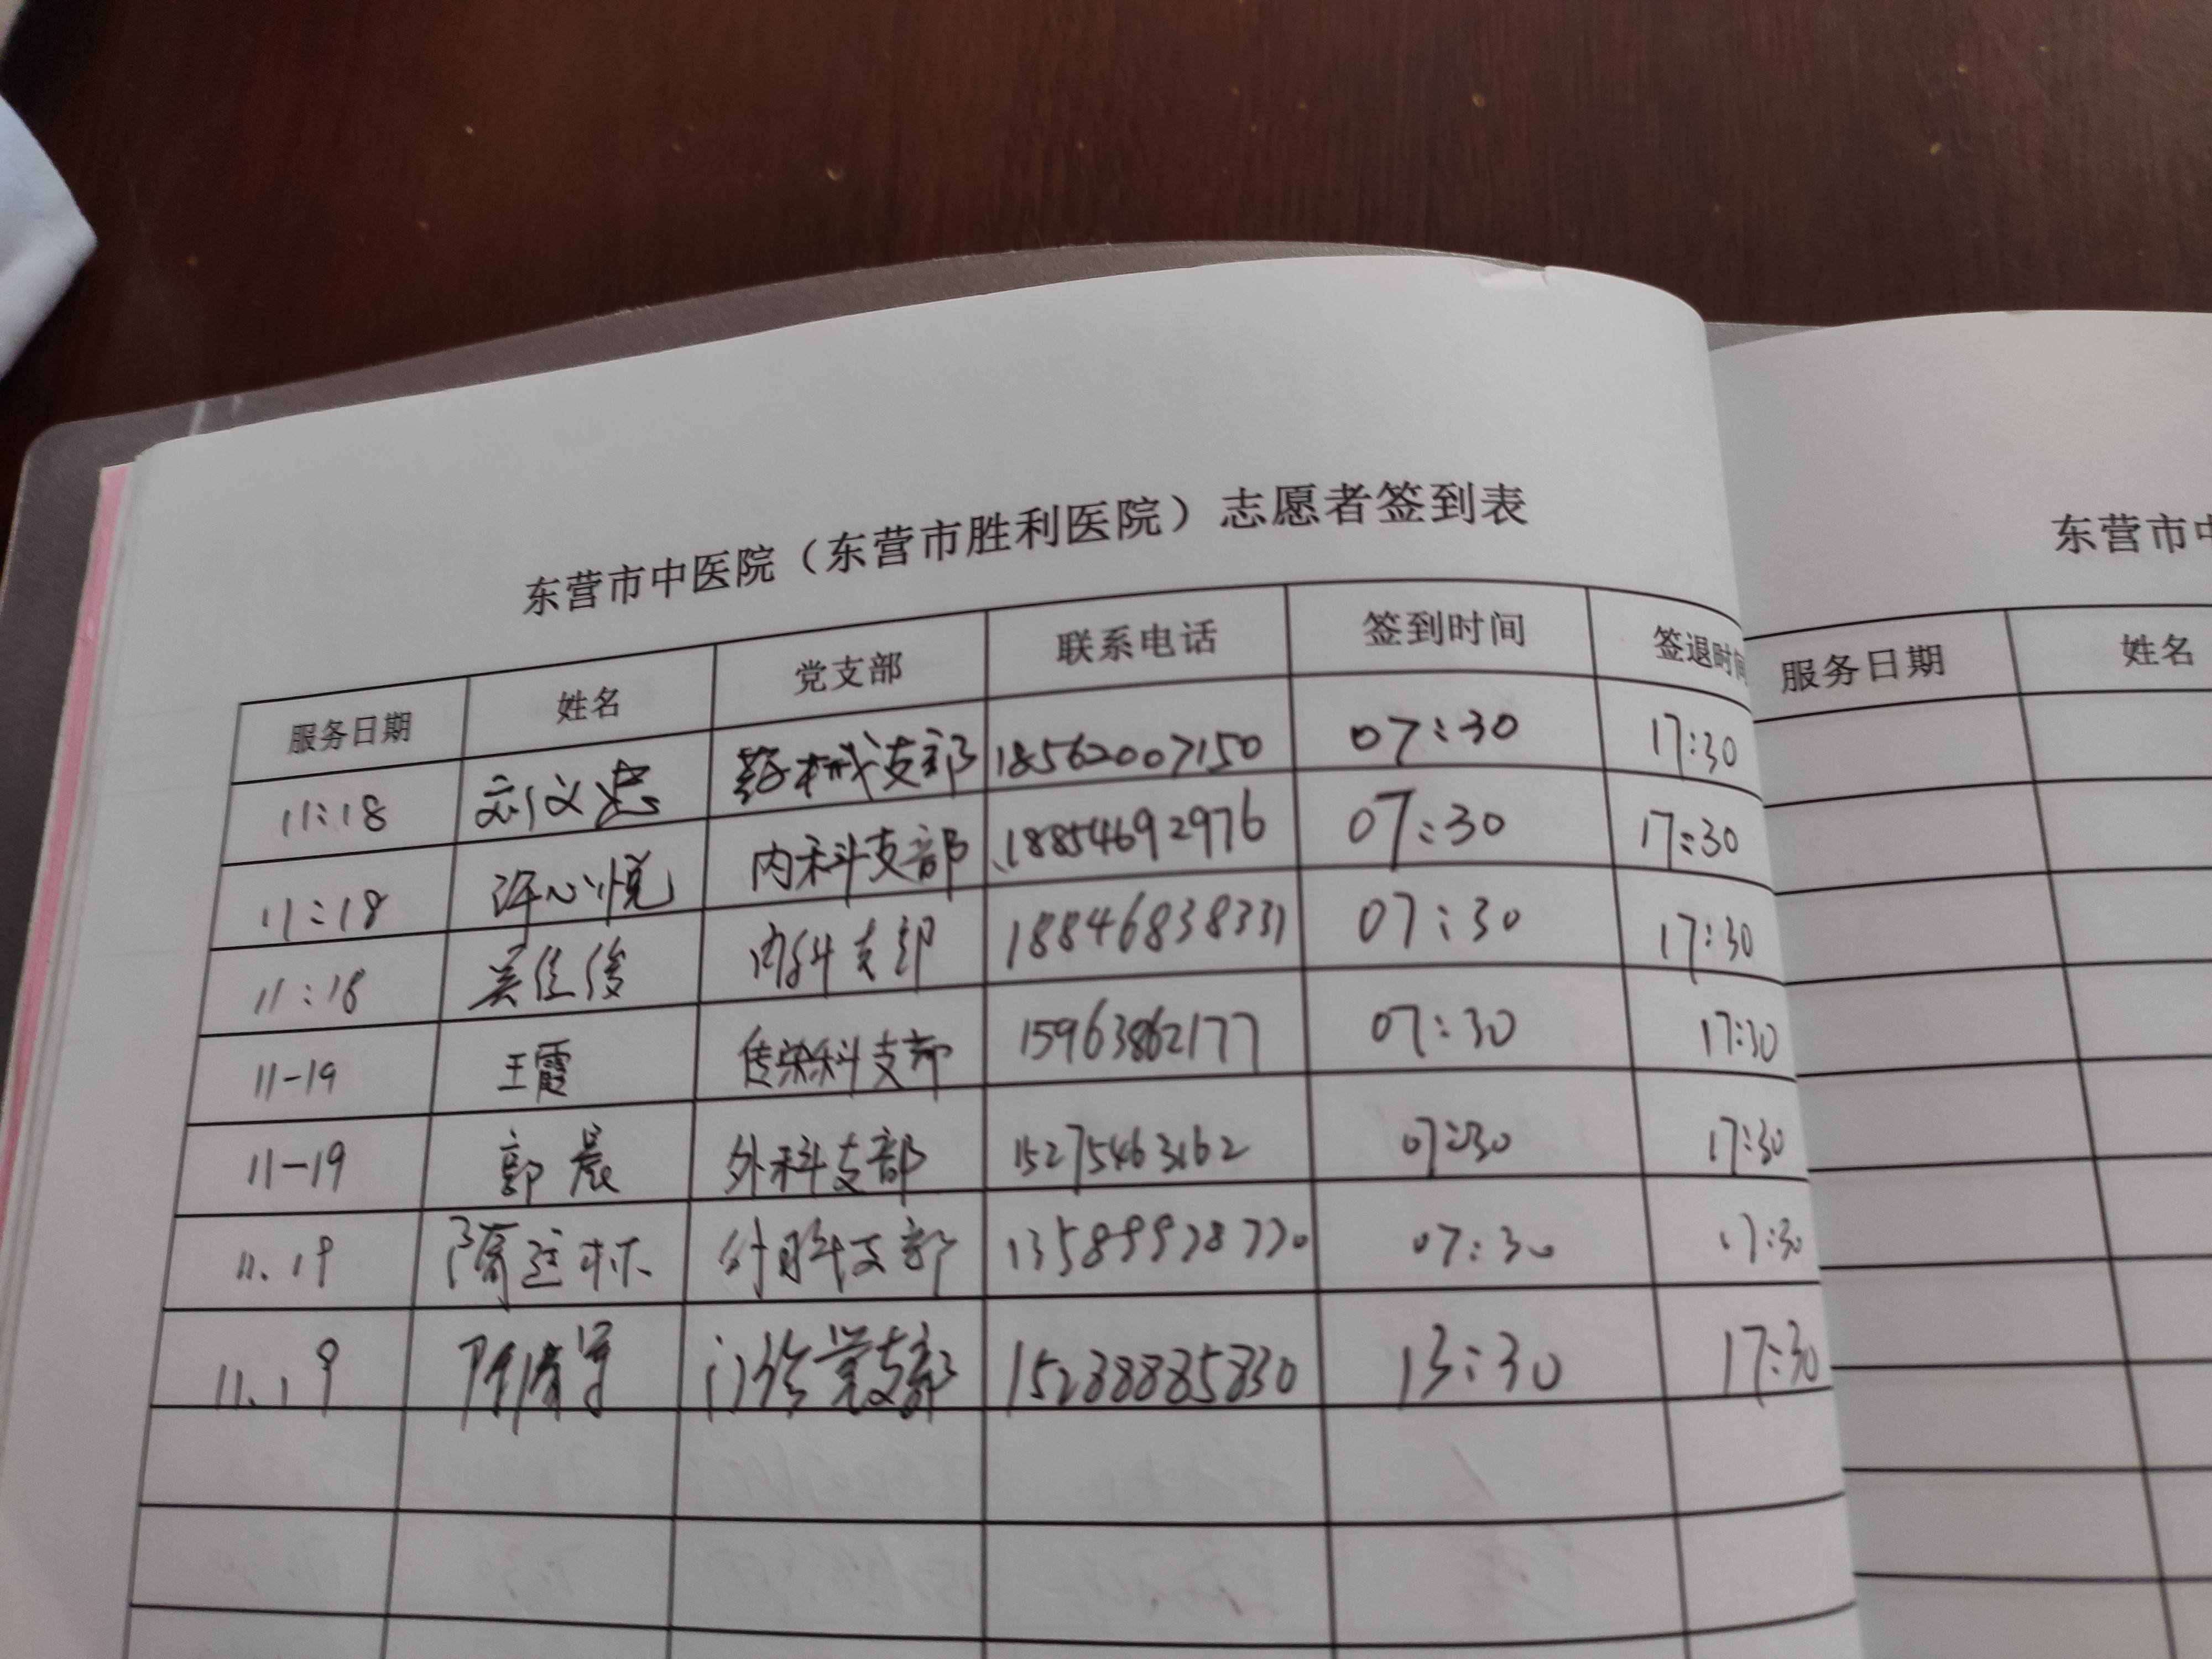 东营市中医院（东营市胜利医院）志愿者签到表
服务日期 姓名 党支部 联系电话 签到时间 签退时间
11:18 刘文忠 药械支部 18562007150 07:30 17:30
11:18 许心悦 内科支部 18854692976 07:30 17:30
11:18 吴佳俊 内科支部 18846838331 07:30 17:30
11-19 王霞 传染科支部 15963862177 07:30 17:30
11-19 郭晨 外科支部 15275463162 07:30 17:30
11.19 外科支部 07:30 17:30
11.19 门诊党支部 15288885830 13:30 17:30
东营市中
服务日期 姓名